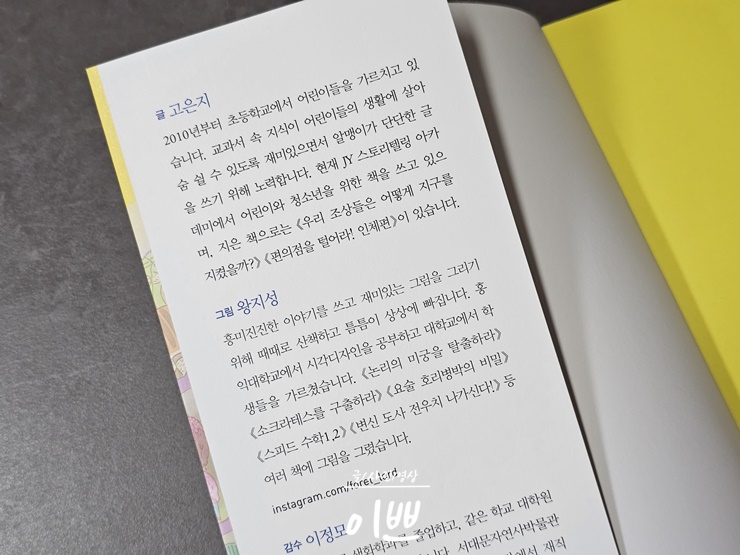 글 고은지
2010년부터 초등학교에서 어린이들을 가르치고 있
습니다. 교과서 속 지식이 어린이들의 생활에 살아
숨 쉴 수 있도록 재미있으면서 알맹이가 단단한 글
을 쓰기 위해 노력합니다. 현재 JY 스토리텔링 아카
데미에서 어린이와 청소년을 위한 책을 쓰고 있으
며, 지은 책으로는 《우리 조상들은 어떻게 지구를
지켰을까?》 《편의점을 털어라! 인체편》이 있습니다.
그림 왕지성
흥미진진한 이야기를 쓰고 재미있는 그림을 그리기
위해 때때로 산책하고 틈틈이 상상에 빠집니다. 홍
익대학교에서 시각디자인을 공부하고 대학교에서 학
생들을 가르쳤습니다. 《논리의 미궁을 탈출하라》
《소크라테스를 구출하라》 《요술 호리병박의 비밀》
《스피드 수학1,2》 《변신 도사 전우치 나가신다!》 등
여러 책에 그림을 그렸습니다.
instagram.com/foret_lord
글/사진/영상
이쁘
감수 이정모
생화학과를 졸업하고, 같은 학교 대학원
서대문자연사박물관
에서 재직